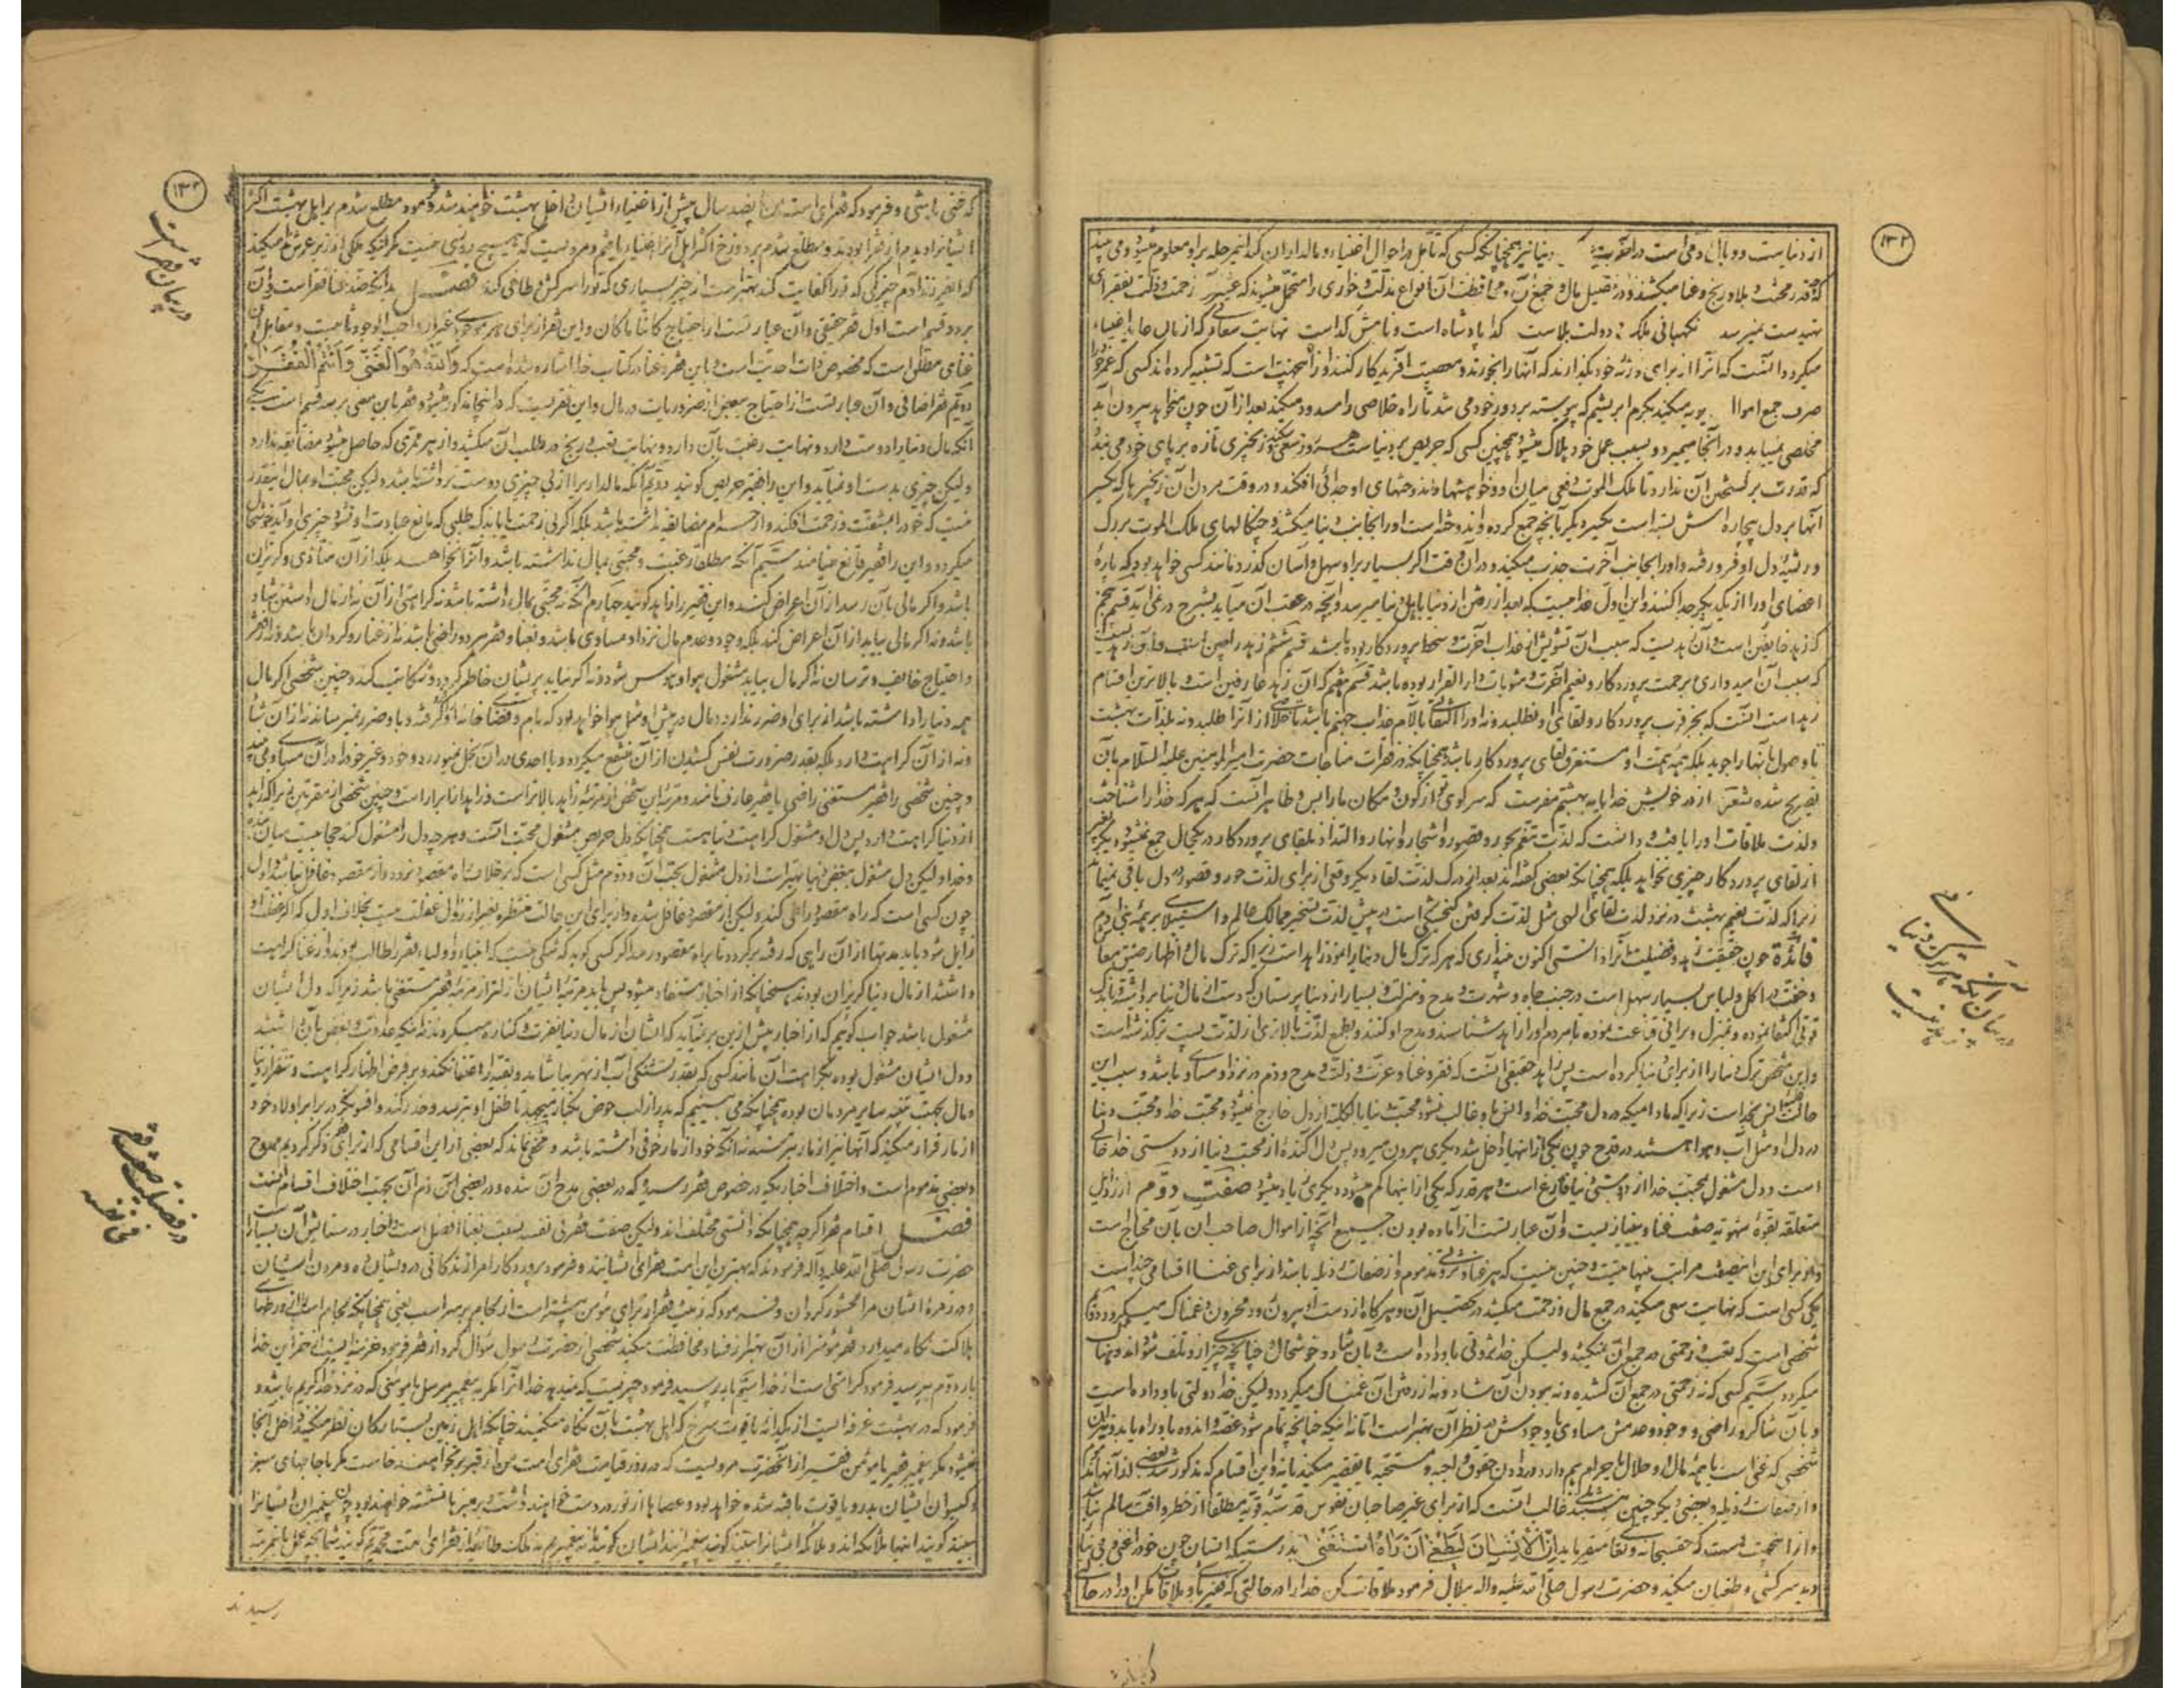 ۱۳۲
از دنیاست و وبال او می است در آخرت دنیا نیز همچنانکه کسی که تأمل در احوال اغنیاء و مالداران کند اینمرحله براو معلوم میشود و می بیند
که چقدر محنت و بلا و رنج و عنا میکشند و در تحصیل مال و جمع آن و محافظت آن انواع مذلت و خواری را متحمل میشوند که عشر آن زحمت و ذلت بفقرای
تهیدست نمیرسد نگهبانی ملک و دولت بلاست گدا پادشاه است و نامش گداست نهایت
میگردد آنست که آنرا از برای ورثه خود بگذارند که آنها را بخورند و معصیت آفریدگار کنند و از اینجهت است که تشبیه کرده اند کسی که عمر خود را
صرف جمع اموال میکند بکرم ابریشم که پیوسته بر دور خود می تند تا راه خلاصی را مسدود میکند بعد از آن چون میخواهد بیرون آید
مخلصی نمییابد و در آنجا میمیرد و بسبب عمل خود هلاک میشود همچنین کسی که حریص بر دنیاست هر روز زنجیری تازه بر پای خود می بندد
که قدرت بر گسستن آن ندارد تا ملک الموت دفعی میان او و خواهشها و اندوختهای او جدائی افکند و در وقت مردن آن زنجیرها که یکسر
آنها بر دل بیچاره اش بسته است یکسر دیگر بآنچه جمع کرده و اندوخته است او را بجانب دنیا میکشند و چنگالهای ملک الموت بر رگ
و ریشهٔ دل او فرو رفته و او را بجانب آخرت جذب میکند و در آن وقت اگر بسیار بر او سهل و آسان گذرد مانند کسی خواهد بود که پارهٔ
اعضای او را از یکدیگر جدا کنند و این اول عذابیست که بعد از رفتن از دنیا باهل دنیا میرسد و آنچه در عقب آن میآید بشرح در نمی آید قسم پنجم
که زهد خائفین است و آن زهدیست که سبب آن تشویش از عذاب آخرت و سخط پروردگار بوده باشد قسم ششم زهد راجین
که سبب آن امیدواری برحمت پروردگار و نعیم آخرت و مثوبات دار القرار بوده باشد قسم هفتم که آن زهد عارفین است و بالاترین اقسام
زهد است آنست که بجز قرب پروردگار و لقای او نطلبد و نه او را التفاتی بآلام عذاب جهنم باشد تا خلاصی از آنرا طلبد و نه بلذات بهشت
تا وصول بآنها را جوید بلکه همهٔ همت او مستغرق لقای پروردگار باشد همچنانکه در فقرات مناجات حضرت امیرالمومنین علیه السلام بآن
تصریح شده شعر از در خویش خدایا به بهشتم مفرست که سر کوی تو از کون و مکان ما را بس و ظاهر آنست که هر که خدا را شناخت
ولذت ملاقات او را یافت و دانست که لذت تنعم بحور و قصور و اشجار و انهار و التذاذ بلقای پروردگار در یکحال جمع نمیشود
از لقای پروردگار چیزی نخواهد بلکه همچنانکه بعضی گفته اند بعد از درک لذت لقا دیگر وقعی از برای لذت حور و قصور در دل باقی نمیماند
زیرا که لذت نعیم بهشت در نزد لذت لقای الهی مثل لذت گرفتن گنجشکی است در پیش لذت تسخیر ممالک عالم و استیلا بر همهٔ بنی آدم
فائدة چون حقیقت زهد و فضیلت آنرا دانستی اکنون مپنداری که هر که ترک مال دنیا را نمود زاهد است زیرا که ترک مال و اظهار ضیق معاش
و خفت در اکل و لباس بسیار سهل است در جنب جاه و شهرت و مدح و منزلت و بسیار از دنیاپرستان که دست از مال دنیا برداشته باندک
قوتی اکتفا نموده و بمنزل ویرانی قناعت نموده تا مردم او را زاهد شناسند و مدح او کنند و بطمع لذت بالاتری از لذت پست تر گذشته است
و این شخص ترک دنیا را از برای دنیا کرده است پس زاهد حقیقی آنست که فقر و غنا و عزت و ذلت و مدح و ذم در نزد او مساوی باشد و سبب این
حالت انس بخداست زیرا که مادامیکه در دل محبت خدا و انس با و غالب نشود محبت دنیا بالکلیه از دل خارج نمیشود و محبت خدا و محبت دنیا
در دل او مثل آب و هوا هستند در قدح چون یکی از آنها داخل شد دیگری بیرون میرود پس دل آکنده از محبت دنیا از دوستی خدا خالی
است و دل مشغول بمحبت خدا از دوستی دنیا فارغ است و هر قدر که یکی از اینها کم میشود دیگری زیاد میشود صفت دوم از رذایل
متعلقه بقوهٔ شهویه صفت غنا و بی نیازیست و آن عبارتست از آماده بودن جمیع آنچه از اموال صاحب آن بآن محتاج است
و از برای این صفت مراتب بینهایتست و چنین نیست که هر غنا و ثروتی مذموم و از صفات رذیله باشد از برای غنا اقسامی چند است
یکی کسی است که نهایت سعی میکند در جمع مال و زحمت میکشد در تحصیل آن و هرگاه از دست او بیرون رود محزون و غمناک میگردد دوم
شخصی است که تعب و زحمتی در جمع آن نمیکشد ولیکن خدا ثروتی باو داده است و بآن شاد و خوشحال چنانچه چیزی از او تلف شود اندوهناک
میگردد سیم کسی که نه زحمتی در جمع آن کشیده و نه ببودن آن شاد و نه از رفتن آن غمناک میگردد ولیکن خدا دولتی باو داده است
و بآن شاکر و راضی و وجود و عدمش مساوی یا وجودش در نظر آن بهتر است اما نه اینکه چنانچه تمام شود غصه و اندوه باو راه یابد
شخصی که غنی است یا همهٔ مال او حلال یا حرام هم دارد و در دادن حقوق واجبه و مستحبه یا تقصیر میکند یا نه و این اقسام که مذکور شد بعضی
و از صفات رذیله و بعضی دیگر چنین نیستند غالب آنست که از برای غیر صاحبان نفوس قدسیه قویه مطلقا از خطر و آفت سالم نباشد
و از اینجهت است که حقسبحانه و تعالی میفرماید اِنَّ الْاِنْسَانَ لَیَطْغٰی اَنْ رَاٰهُ اسْتَغْنٰی بدرستیکه انسان چون خود را غنی و بی نیاز
دید سرکشی و طغیان میکند و حضرت رسول صلی الله علیه واله ببلال فرمود ملاقات کن خدا را در حالتی که فقیر باشی و ملاقات مکن او را در حالی
در بیان اینکه
ترک دنیا
که غنی باشی و فرمود که فقرای امت من پانصد سال پیش از اغنیاء ایشان داخل بهشت خواهند شد و فرمود مطلع شدم بر اهل بهشت اکثر
ایشانرا دیدم از فقرا بودند و مطلع شدم بر دوزخ اکثر اهل آنرا اغنیا یافتم و مرویست که هیچ روزی نیست مگر اینکه ملکی از زیر عرش ندا میکند
که ای فرزند آدم چیز کمی که تو را کفایت کند بهتر است از چیز بسیاری که تو را سرکش و طاغی کند فصل بدانکه ضد غنا فقر است و آن
بر دو قسم است اول فقر حقیقی و آن عبارتست از احتیاج کائنا ما کان و این فقر از برای هر موجودی غیر از واجب الوجود ثابتست و مقابل آن
غنای مطلق است که مخصوص ذات احدیت است و باین فقر و غنا در کتاب خدا اشاره شده است که وَاللهُ هُوَ الْغَنِیُّ وَاَنْتُمُ الْفُقَرَاءُ
دویم فقر اضافی و آن عبارتست از احتیاج ببعض از ضروریات در مال و این فقریست که در اینجا مذکور میشود و فقر باین معنی بر چند قسم است یکی
آنکه مال دنیا را دوست دارد و نهایت رغبت بآن دارد و نهایت تعب و رنج در طلب آن میکشد و از هر ممری که حاصل میشود مضائقه ندارد
ولیکن چیزی بدست او نمیآید و این را فقیر حریص گویند دویم آنکه مالدار بر از بی چیزی دوست تر داشته باشد ولیکن محبت او بمال بقدر
نیست که خود را بمشقت و زحمت افکند و از حرام مضایقه نداشته باشد بلکه اگر بی زحمت یا باندک طلبی که مانع عبادت او نشود چیزی باو آید خوشحال
میگردد و این را فقیر قانع مینامند سیم آنکه مطلقا رغبت و محبتی بمال نداشته باشد و آنرا نخواهد بلکه از آن متأذی و گریزان
باشد و اگر مالی بآن رسد از آن اعراض کند و این فقیر را زاهد گویند چهارم آنکه نه محبتی بمال داشته باشد و نه کراهتی از آن نه از مال داشتن شاد
باشد و نه اگر مالی بیابد از آن اعراض کند بلکه وجود و عدم مال نزد او مساوی باشد و بغنا و فقر هر دو راضی باشد نه از غنا روگردان باشد و نه از فقر
و احتیاج خائف و ترسان نه اگر مال بیابد مشغول هوا و هوس شود و نه اگر نیابد پریشان خاطر گردد و شکایت کند و چنین شخصی اگر مال
همه دنیا را داشته باشد از برای او ضرر ندارد و مال در پیش او مثل هوا خواهد بود که بام و فضای خانه او را گرفته و باو ضرر نمیرساند نه از آن شاد
و نه از آن کراهت دارد بلکه بقدر ضرورت نفس کشیدن از آن منتفع میگردد و با احدی در آن بخل نمیورزد و خود و غیر خود را در آن مساوی می بیند
و چنین شخصی را فقیر مستغنی راضی یا فقیر عارف نامند و مرتبه این شخص از مرتبه زاهد بالاتر است زیرا زاهد از ابرار است و چنین شخص از مقربین زیرا که زاهد
از دنیا کراهت دارد پس دل او مشغول کراهت دنیا هست همچنانکه دل حریص مشغول محبت آنست و هر چه دل را مشغول کند حجابیست میان بنده
و خدا ولیکن دل مشغول ببغض دنیا بهتر است از دل مشغول بحب آن و دوم مثل کسی است که بر خلاف راه مقصود رود و از مقصود غافل باشد و اول
چون کسی است که راه مقصود را طی کند ولیکن از مقصود غافل شده
زایل شود باید مدتها از آن راهی که رفته برگردد تا براه مقصود رسد اگر کسی گوید که شکی نیست که انبیاء و اولیاء فقر را طالب بودند و از غنا کراهت
داشتند از مال دنیا گریزان بودند همچنانکه از اخبار مستفاد میشود پس باید مرتبه ایشان نازلتر از مرتبه فقیر مستغنی باشد زیرا که دل ایشان
مشغول باشد جواب گوییم که از اخبار بیش از این بر نمیآید که ایشان از مال دنیا نفرت و کناره میکردند نه اینکه عداوت و بغض بآن داشتند
و دل ایشان مشغول بوده بکراهت آن مانند کسی که بقدر تشنگی آب از نهر بیاشامد و بقیه را اعتنا نکند و بر فرض اظهار کراهت و تنفر از دنیا
و مال بجهت تنبه سایر مردمان بوده همچنانکه می بینیم که پدر از لب حوض بکنار میجهد تا طفل او بترسد و حذر کند و افسونگر در برابر اولاد خود
از مار فرار میکند که آنها نیز از مار بترسند نه آنکه خود از مار خوفی داشته باشد و مخفی نماند که بعضی از این اقسامی که از برای فقر ذکر کردیم ممدوح
و بعضی مذموم است و اختلاف اخباریکه در خصوص فقر رسیده که در بعضی مدح آن شده و در بعضی دیگر ذم آن بجهت اختلاف اقسام آنست
فصل اقسام فقرا اگرچه همچنانکه دانستی مختلف اند ولیکن صفت فقر فی نفسه بنسبت بغنا افضل است و اخبار در ستایش آن بسیار است
حضرت رسول صلی الله علیه وآله فرمودند که بهترین این امت فقرای ایشانند و فرمود پروردگارا مرا زندگانی درویشان ده و مردن ایشان
و در زمرهٔ ایشان مرا محشور گردان و فرمود که زینت فقر از برای مؤمن بیشتر است از لجام بر سر اسب یعنی همچنانکه لجام اسب را از ورطها
هلاکت نگاه میدارد فقر مؤمن را از آن بهتر از فساد محافظت میکند شخصی از حضرت رسول سؤال کرد از فقر فرمود خزینه ایست از خزاین خدا
بار دوم پرسید فرمود کرامتی است از خدا سیم بار پرسید فرمود چیزیست که نمیدهد خدا آنرا مگر به پیغمبر مرسل یا مومنی که در نزد خدا کریم باشد و
فرمود که در بهشت غرفه ایست از یکدانه یاقوت سرخ که اهل بهشت بآن نگاه میکنند چنانکه اهل زمین بستارگان نظر میکنند داخل آنجا
نمیشود مگر پیغمبر فقیر یا مؤمن فقیر از آنحضرت مرویست که در روز قیامت فقرای امت من از قبر بر خواهند خاست با جامهای سبز
و گیسوان ایشان بدر و یاقوت بافته شده خواهد بود و عصاها از نور در دست خواهند داشت و بر منبرها نشسته خواهند بود چون پیغمبران ایشانرا
ببینند گویند اینها ملائکه اند و ملائکه ایشانرا ببینند گویند پیغمبرانند ایشان گویند نه پیغمبریم نه ملک طائفهٔ از فقرای امت محمدیم گویند شما بچه عمل باینمرتبه
رسیدند
در بیان فقر است